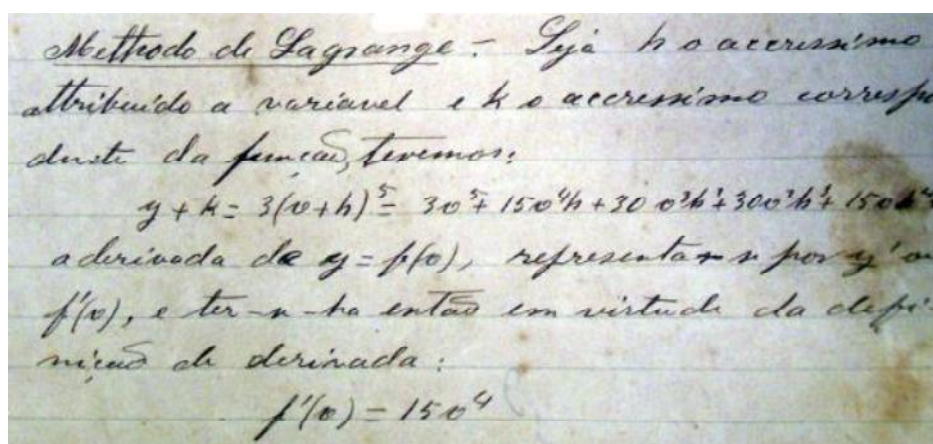 Methodo de Lagrange - Seja h o accressimo
attribuido a variavel e k o accressimo correspo
dente da funcão, teremos:
y + k = 3(v+h)⁵ = 3v⁵ + 15v⁴h + 30v³h² + 30v²h³ + 15vh⁴
a derivada de y = f(v), representam-se por y' ou
f'(v), e ter-se-ha então em virtude da defi-
nição de derivada:
f'(v) = 15v⁴